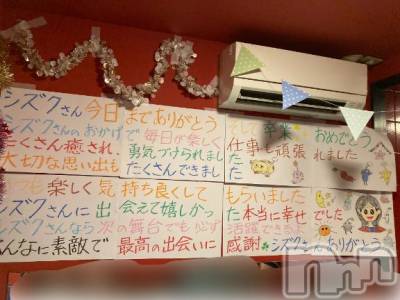 シズクさん 今日までありがとう そして卒業 おめでとう
シズクさんのおかげで毎日が楽しく 仕事も頑張れました
たくさん癒され 勇気づけられました
大切な思い出も たくさんできました
いつも楽しく気持ち良くして もらいました
シズクさんに出会えて嬉しかった 本当に幸せでした
シズクさんなら 次の舞台でも必ず 活躍できるよ
こんなに素敵で 最高の出会いに 感謝 シズクさんありがとう